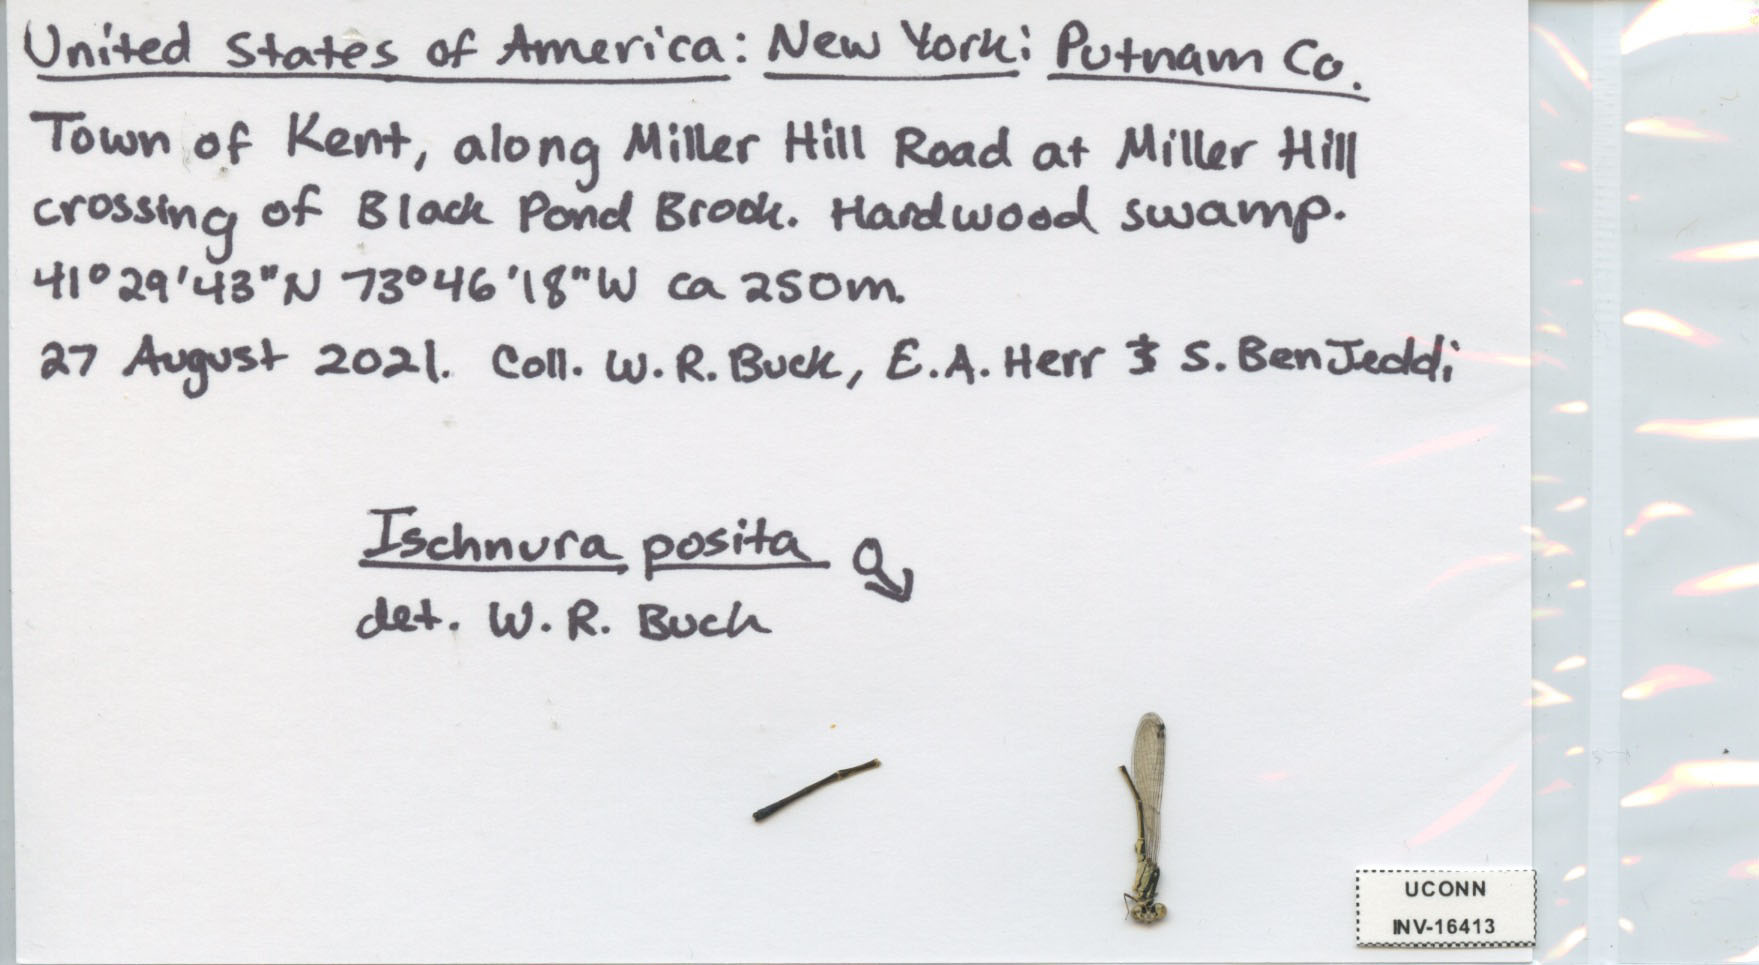 United States of America: New York: Putnam Co.
Town of Kent, along Miller Hill Road at Miller Hill
crossing of Black Pond Brook. Hardwood swamp.
41°29'43"N 73°46'18"W ca 250m.
27 August 2021. Coll. W. R. Buck, E. A. Herr & S. BenJeddi
Ischnura posita ♂
det. W. R. Buck
UCONN
INV-16413